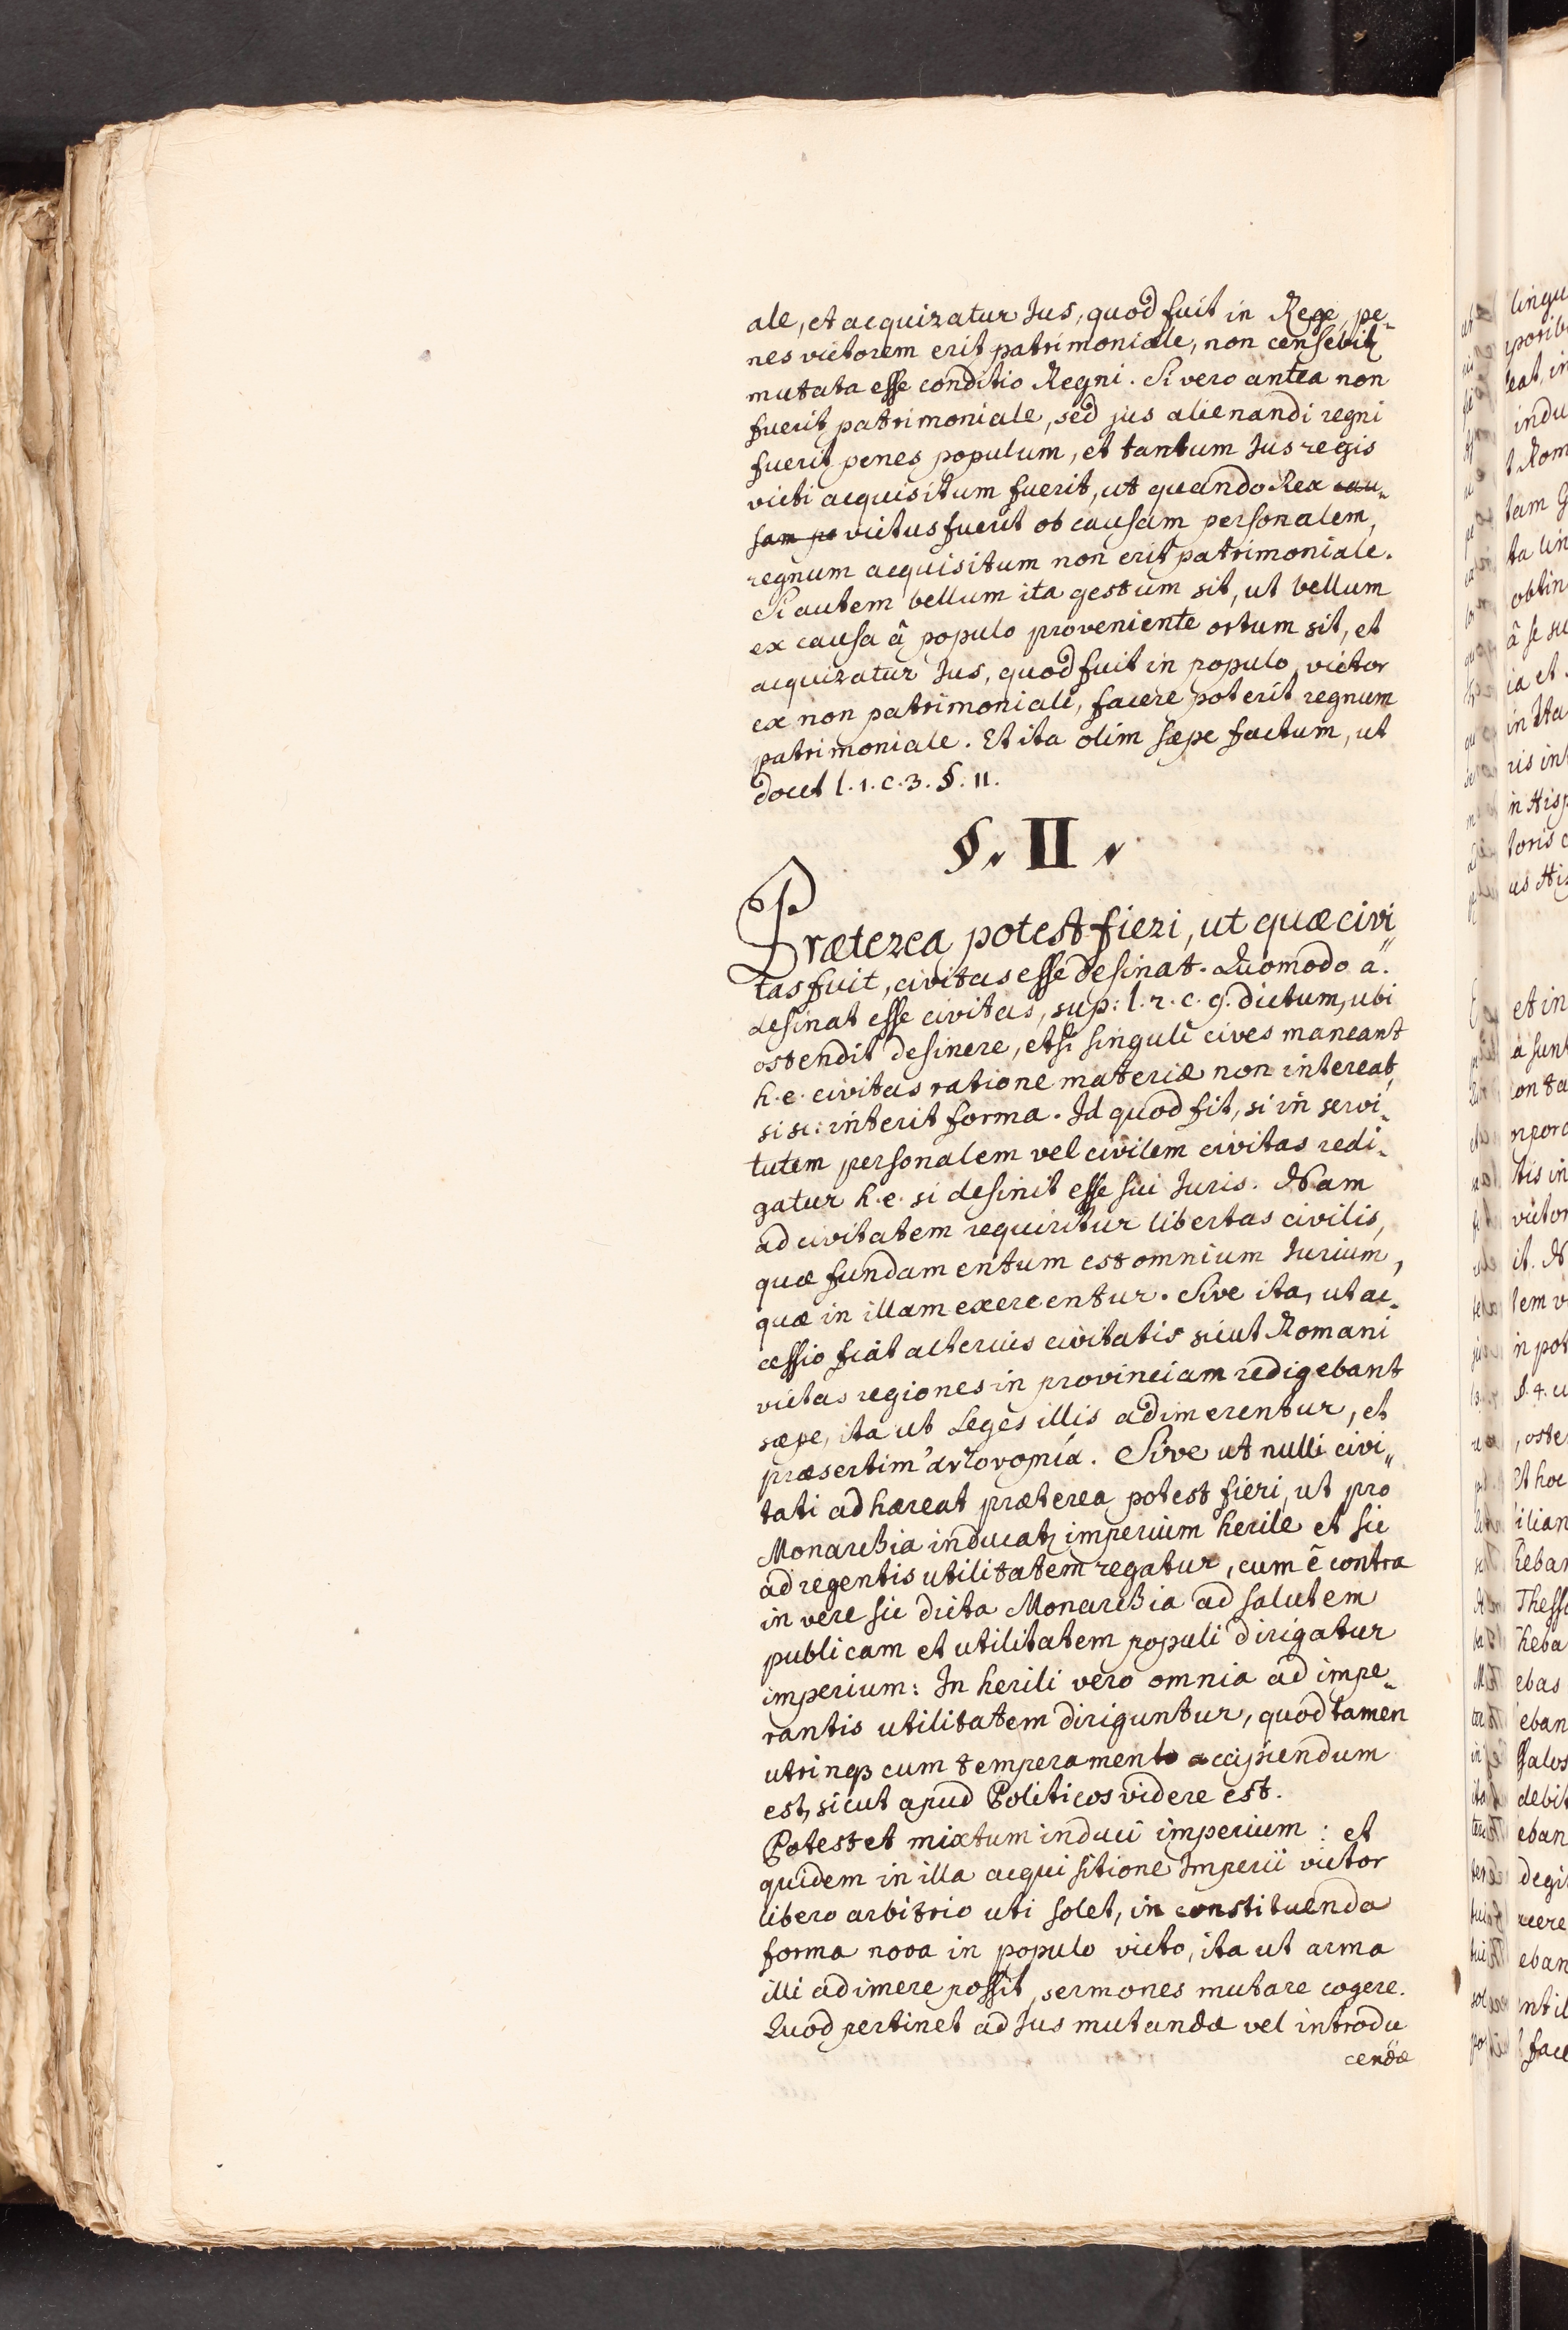 ale, et acquiratur Jus, quod fuit in Rege, pe-
nes victorem erit patrimoniale, non censebitr
mutata esse conditio Regni. Si vero antea non
fuerit patrimoniale, sed jus alienandi regni
fuerit penes populum, et tantum Jus regis
victi acquisitum fuerit, ut quando Rex cau-
sam pe victus fuerit ob causam personalem,
regnum acquisitum non erit patrimoniale.
Si autem bellum ita gestum sit, ut bellum
ex causa â populo proveniente ortum sit, et
acquiratur Jus, quod fuit in populo, victor
ex non patrimoniali, facere poterit regnum
patrimoniale. Et ita olim sæpe factum, ut
docet l. 1. c. 3. §. 11.
§. II.
Præterea potest fieri, ut quæ civi-
tas fuit, civitas esse desinat. Quomodo a.
desinat esse civitas, sup: l. 2. c. 9. dictum, ubi
ostendit desinere, etsi singuli cives maneant
h. e. civitas ratione materiæ non intereat,
si sc: interit forma. Id quod fit, si in servi-
tutem personalem vel civilem civitas redi-
gatur h. e. si desinit esse sui Juris. Nam
ad civitatem requiritur libertas civilis,
quæ fundamentum est omnium Jurium,
quæ in illam exercentur. Sive ita, ut ac-
cessio fiat alterius civitatis sicut Romani
victas regiones in provinciam redigebant
sæpe, ita ut Leges illis adimerentur, et
præsertim ἀυτονομία. Sive ut nulli civi-
tati adhæreat præterea potest fieri, ut pro
Monarchia inducatr imperium herile et sic
ad regentis utilitatem regatur, cum ê contra
in vere sic dicta Monarchia ad salutem
publicam et utilitatem populi dirigatur
imperium: In herili vero omnia ad impe-
rantis utilitatem diriguntur, quod tamen
utrinqȝ cum temperamento accipiendum
est, sicut apud Politicos videre est.
Potest et mixtum induci imperium: et
quidem in illa acquisitione Imperii victor
libero arbitrio uti solet, in constituenda
forma nova in populo victo, ita ut arma
illi adimere possit, sermones mutare cogere.
Quod pertinet ad Jus mutandæ vel introdu-
cendæ